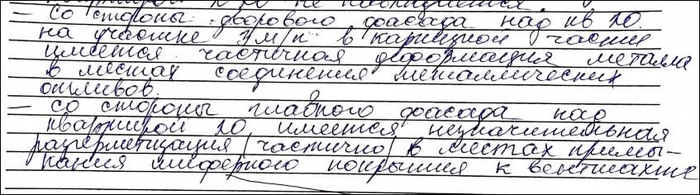 квартирой 20 не наблюдается.
– со стороны дворового фасада над кв 20.
на участке 7 м/п в карнизной части
имеется частичная деформация металла
в местах соединения металлических
отливов.
– со стороны главного фасада над
квартирой 20 имеется незначительная
разгерметизация (частично) в местах примы-
кания шиферного покрытия к вентшахте